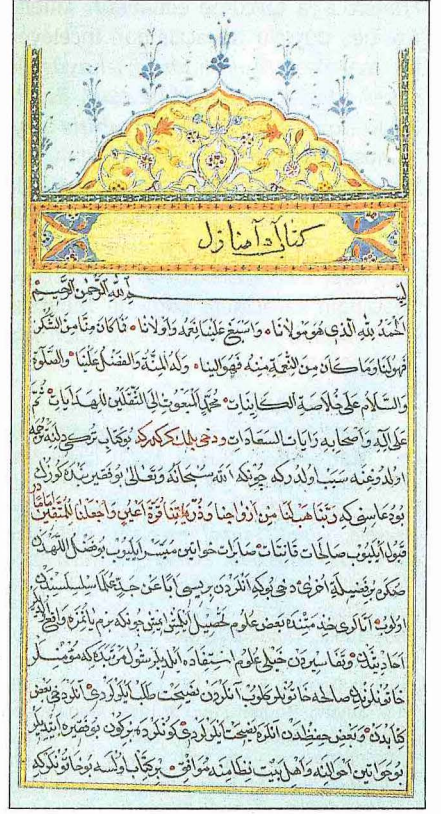 كتاب آمنازل
بسم الله الرحمن الرحيم
الحمد لله الذى هو مولانا واسبغ علينا نعمه واولانا فما كان منا من الشكر
فهو لنا وما كان من النعمة منه فهو الينا وله المنة والفضل علينا والصلوة
والسلام على خلاصة الكاينات محمد المبعوث الى الثقلين للهدايات ثم
على آله واصحابه رايات السعادات ودخى بلك كركدركه بو كتاب تركى دلنه ترجمه
اولدوغنه سبب اولدركه چونكه الله سبحانه وتعالى بو فقير بنده كورك
بو دعاسنى كه ربنا هب لنا من ازواجنا وذرياتنا قرة اعين واجعلنا للمتقين اماما در
قبول ايليوب صالحات قانتات صابرات خواتين ميسر ايليوب بو فضل اللهدن
صكره بر فضيلة اخرى دخى بوكه انلردن بريسى ابا عن جد علما سلسلسندن
اولوب آنالرى خدمتنده بعض علوم تحصيل ايلمش
احاديثدن وتفاسيردن خيلى علوم استفاده ايلديلر شول مرتبده كه مؤمنلر
خاتونلرندن صالحه خاتونلر كلوب آنلردن نصيحت طلب ايلرلردى آنلر دخى بعض
كتابدن وبعض حفظدن انلره نصيحت ايلرلردى كونلرده بر كون بو فقيره ايتديلر
بو خواتين احوالينه واهل بيت نظامنه موافق بر كتاب اولسه بو خاتونلركه